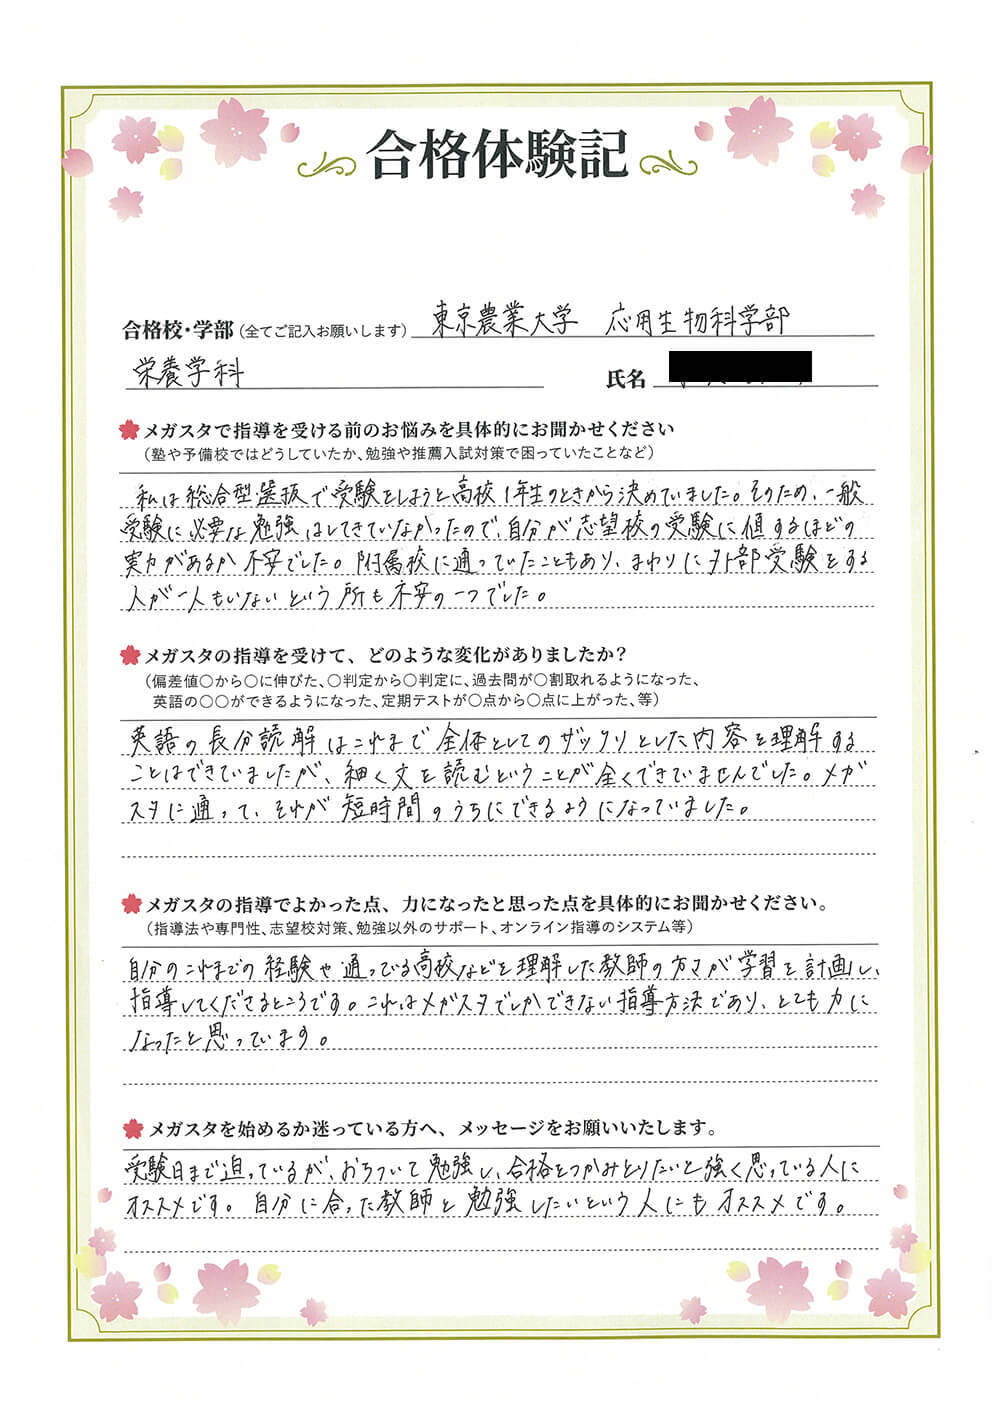 合格体験記
合格校・学部(全てご記入お願いします) 東京農業大学 応用生物科学部
栄養学科 氏名
メガスタで指導を受ける前のお悩みを具体的にお聞かせください
(塾や予備校ではどうしていたか、勉強や推薦入試対策で困っていたことなど)
私は総合型選抜で受験をしようと高校1年生のときから決めていました。そのため、一般
受験に必要な勉強はしてきていなかったので、自分が志望校の受験に値するほどの
実力があるか不安でした。附属校に通っていたこともあり、まわりに外部受験をする
人が一人もいないという所も不安の一つでした。
メガスタの指導を受けて、どのような変化がありましたか?
(偏差値〇から〇に伸びた、〇判定から〇判定に、過去問が〇割取れるようになった、
英語の〇〇ができるようになった、定期テストが〇点から〇点に上がった、等)
英語の長分読解はこれまで全体としてのザックリとした内容を理解する
ことはできていましたが、細く文を読むということが全くできていませんでした。メガ
スタに通って、それが短時間のうちにできるようになっていました。
メガスタの指導でよかった点、力になったと思った点を具体的にお聞かせください。
(指導法や専門性、志望校対策、勉強以外のサポート、オンライン指導のシステム等)
自分のこれまでの経験や通ってる高校などを理解した教師の方々が学習を計画し、
指導してくださるところです。これはメガスタでしかできない指導方法であり、とても力に
なったと思っています。
メガスタを始めるか迷っている方へ、メッセージをお願いいたします。
受験日まで迫っているが、おちついて勉強し、合格をつかみとりたいと強く思っている人に
オススメです。自分に合った教師と勉強したいという人にもオススメです。